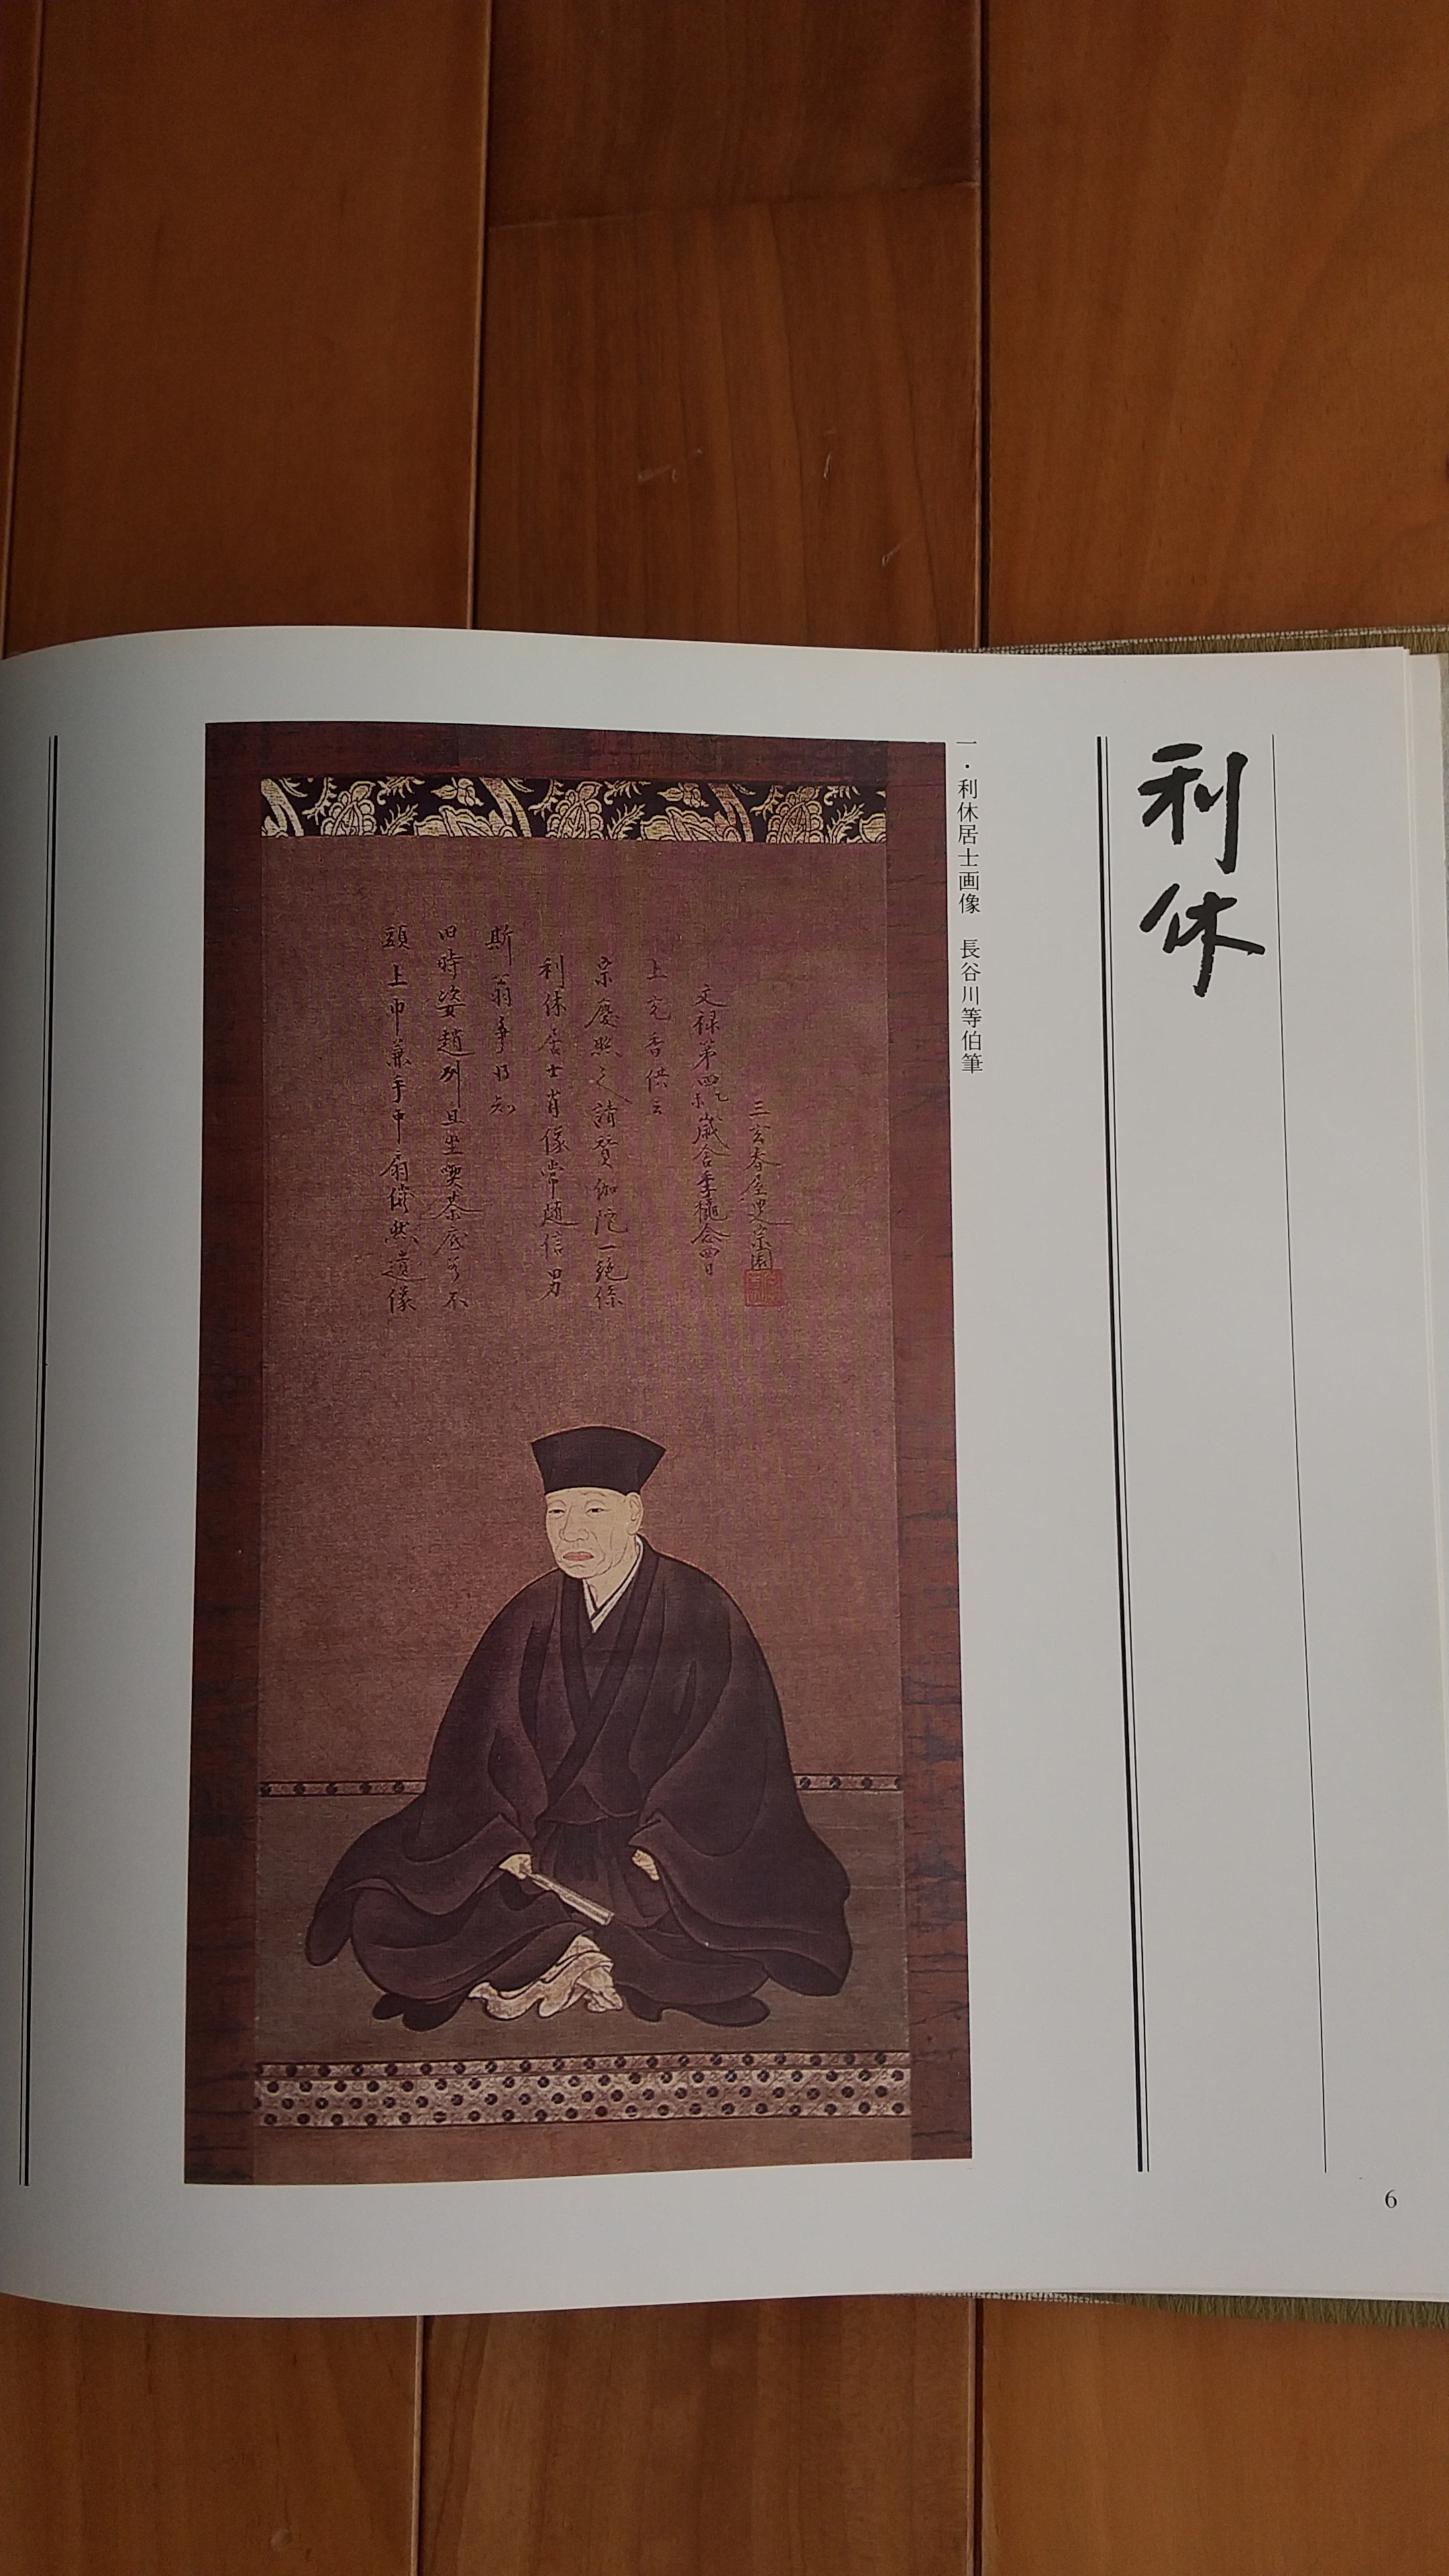 利休
一・利休居士画像　長谷川等伯筆
頭上巾兼手中扇儼然遺像
旧時姿趙州且坐喫茶底若不
斯翁争得知
利休居士肖像常随信男
宗慶照之請賛伽陀一絶係
上充香供云
文禄第四乙未歳舎季穐念四日
三玄春屋叟宗園
6